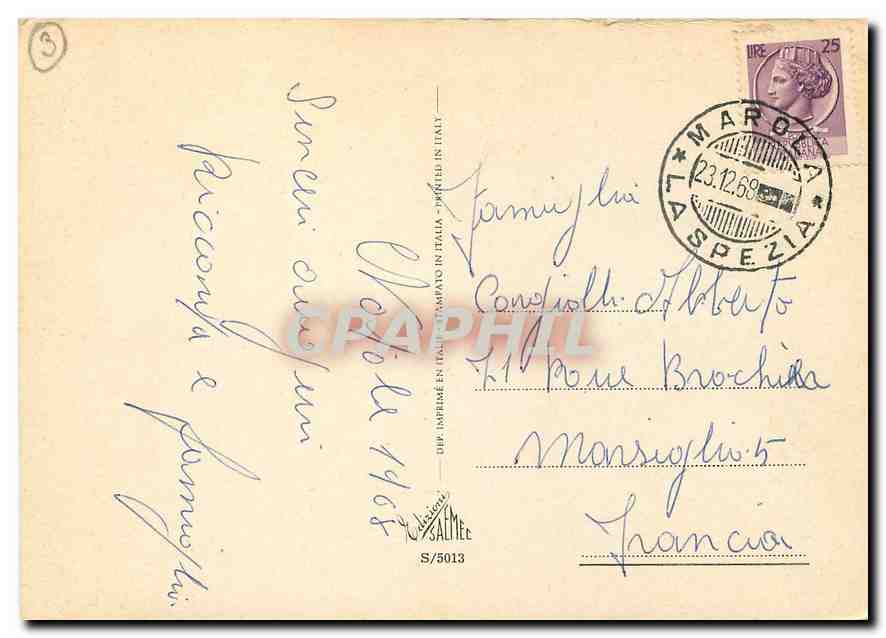 3
Natale 1968
Sinceri auguri
e famiglia
DEP. IMPRIMÉ EN ITALIE - STAMPATO IN ITALIA - PRINTED IN ITALY
Edizioni
SAEMEC
S/5013
LIRE 25
MAROLA
23.12.68
LA SPEZIA
Famiglia
Alberto
71 Rue Brochier
Marsiglia 5
Francia
CPAPHIL